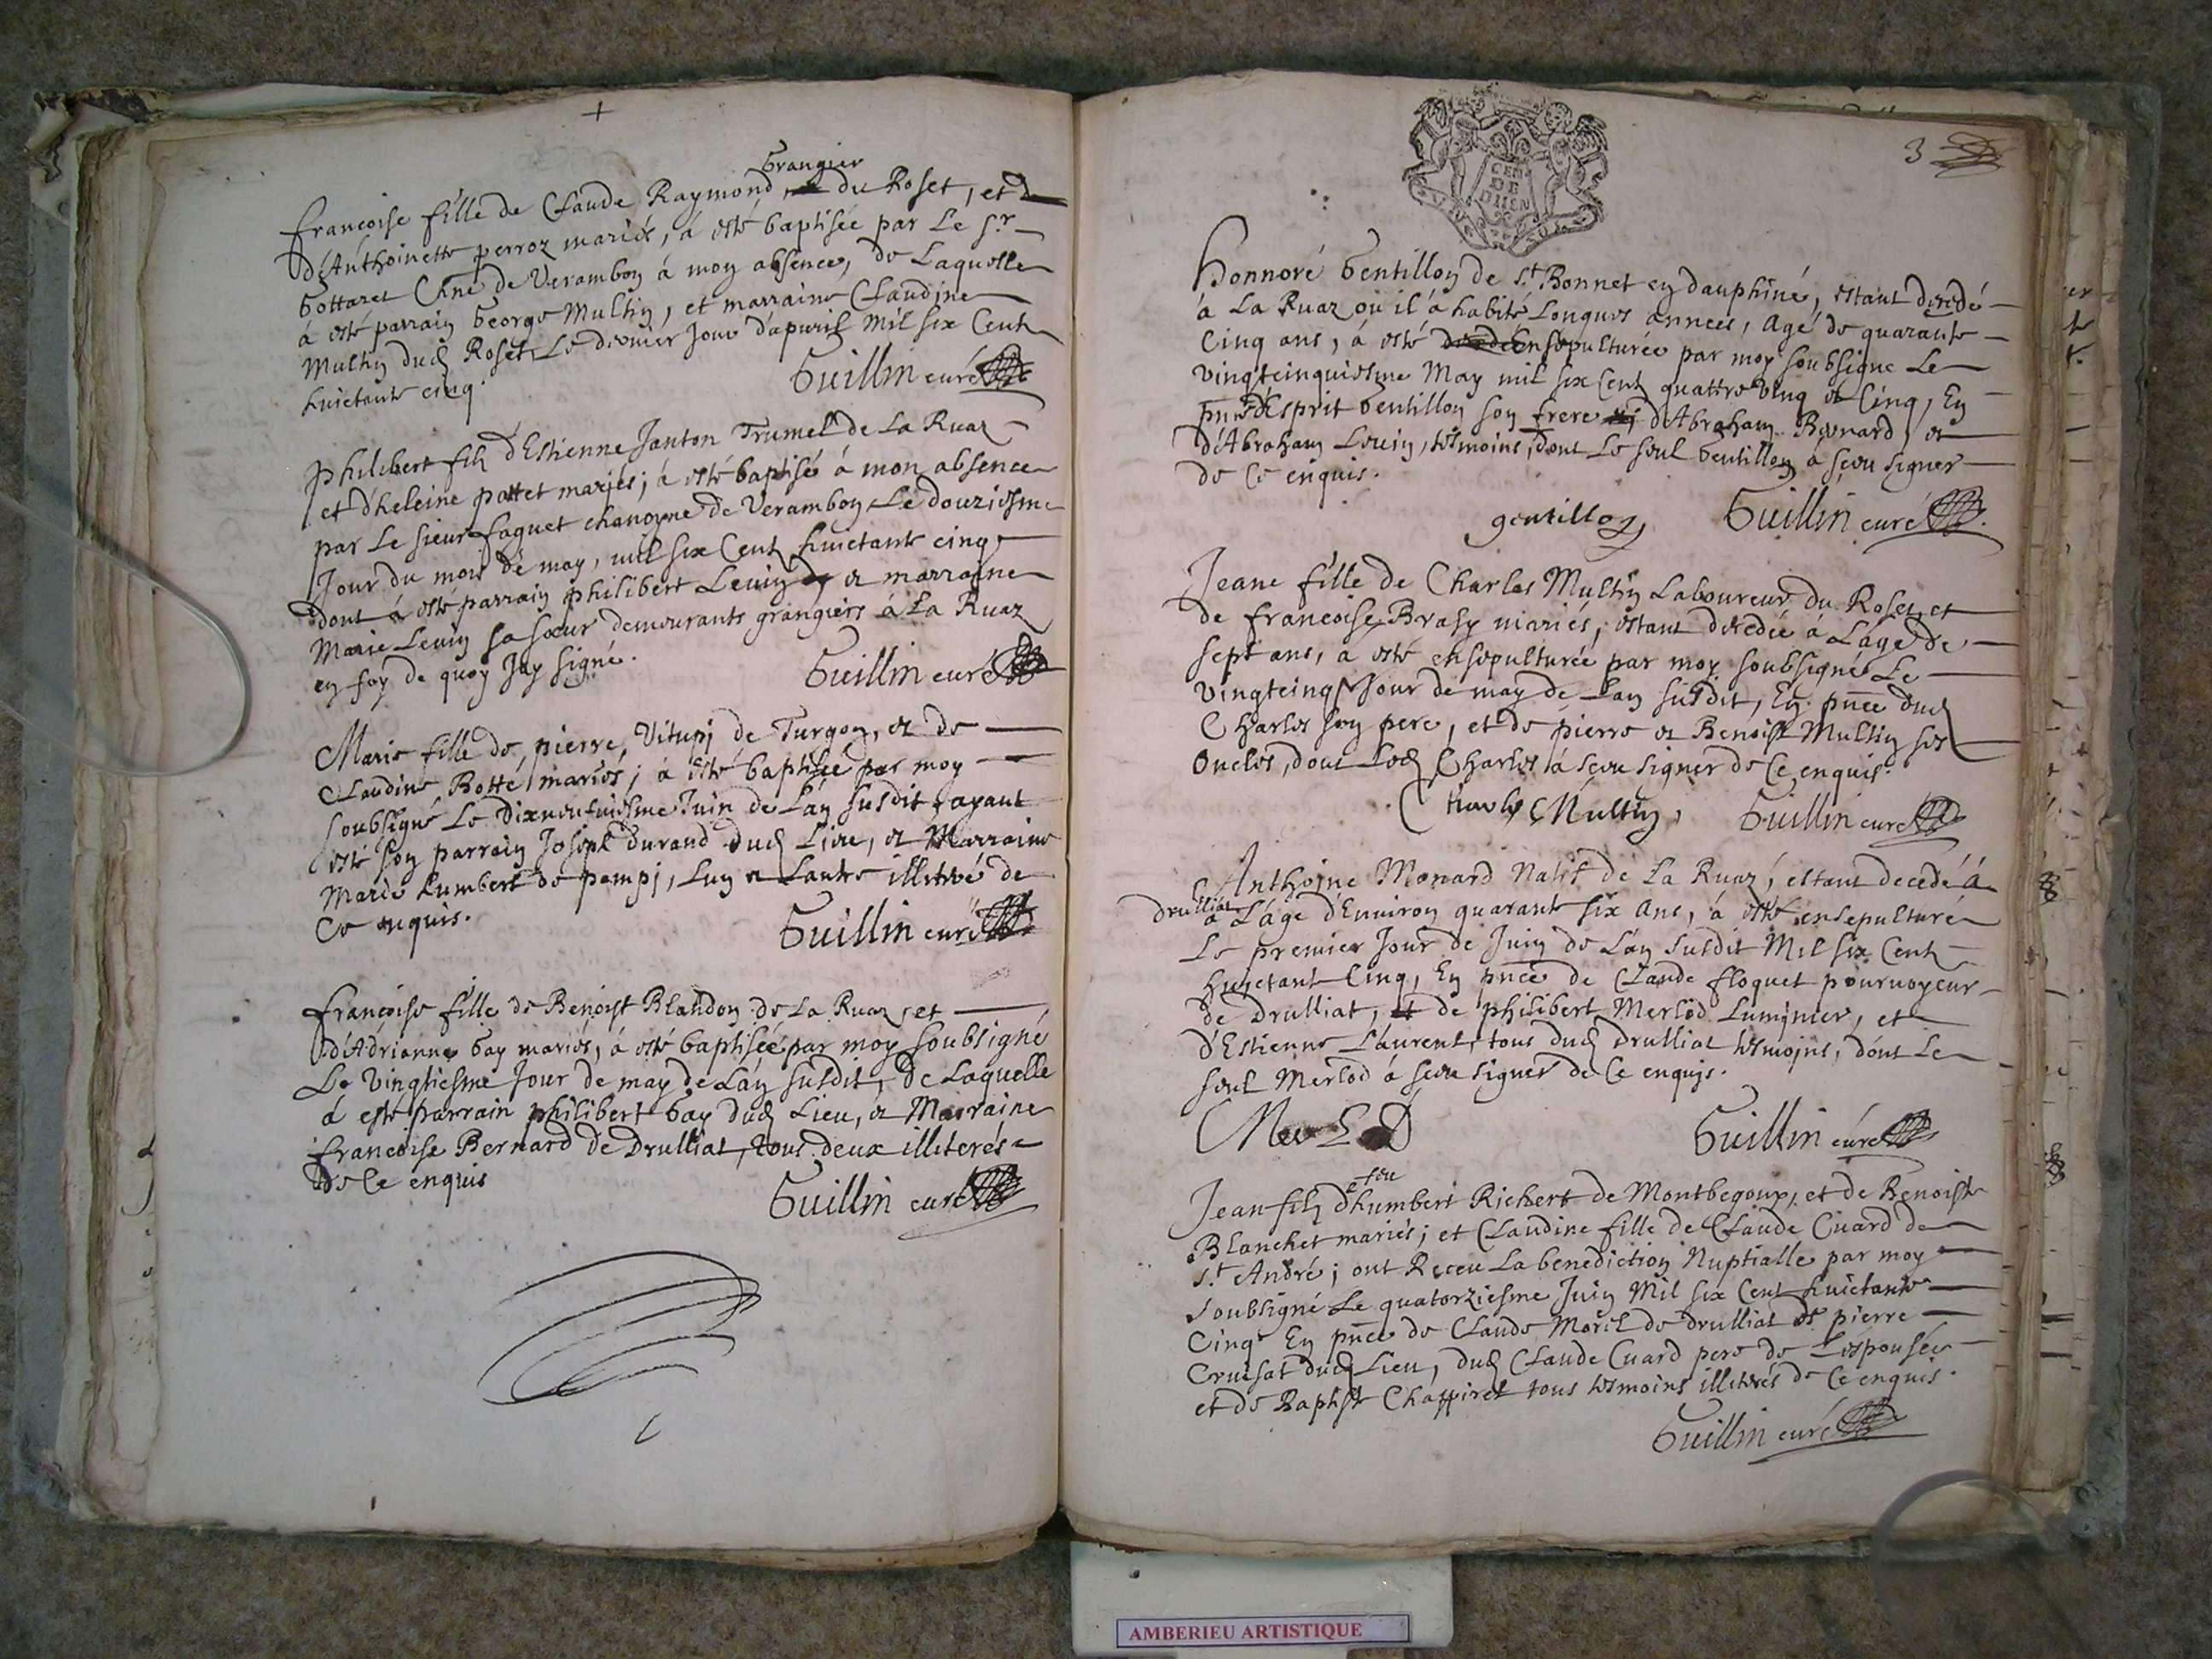 +
Grangier
francoise fille de Claude Raymond, du Roset, et
d'Anthoinette perroz mariés, à esté baptisée par Le Sr
Gottaret Chne de Verambon à moy absence, de Laquelle
à esté parrain George Multin, et marraine Claudine
Multin dud Roset, Le dernier Jour d'apuril mil six Cent
huictante cinq.
Guillin curé
philibert fils d'Estienne Janton Trumel de La Ruaz
et d'heleine pattet mariés; à esté baptisé à mon absence
par Le sieur faguet chanoyne de Verambon Le douziesme
Jour du mois de may, mil six Cent huictante cinq
dont à esté parrain philibert Leuin et marraine
Marie Leuin sa soeur demourants grangiers à La Ruaz
en foy de quoy Jay signé.
Guillin curé
Marie fille de pierre Vitupj de Turgon, et de
Claudine Botte mariés; à esté baptisée par moy
soubsigné Le Dixneufuiesme Juin de L'an susdit, ayant
esté son parrain Joseph durand dud Lieu, et Marraine
Marie humbert de pampj, Luy et Lautre illitré de
Ce enquis.
Guillin curé
francoise fille de Benoist Blandon de La Ruaz, et
d'Adrianne Gay mariés, à esté baptisée par moy soubsigné
Le Vingtiesme Jour de may de L'an susdit, de Laquelle
à esté parrain philibert Gay dud Lieu, et Marraine
francoise Bernard de Drulliat, tous deux illiterés
de Ce enquis
Guillin curé
3
CEN
DE
DIJON
Honnoré Gentillon de St Bonnet en dauphiné, estant decedé
à La Ruaz ou il à habité Longues années, Agé de quarante
Cinq ans, à esté Ensepulturée par moy soubsigné Le
vingtcinquiesme May mil six Cent quattre Vingt et Cinq, En
pnce d'Esprit Gentillon son frere d'Abraham Bernard, et
d'Abraham Leuin, tesmoins, dont Le seul Gentillon à sceu signer
de Ce enquis.
gentillon Guillin curé
Jeane fille de Charles Multin Laboureur du Roset, et
de francoise Brasy mariés; estant decedée à L'âge de
sept ans, à esté ensepulturée par moy soubsigné Le
Vingtcinq Jour de may de L'an susdit, En pnce dud
Charles son pere, et de pierre et Benoist Multin ses
Oncles, dont Led Charles à sceu signer de Ce enquis.
Charles Multin, Guillin curé
Anthoine Monard Natif de La Ruaz, estant decedé à
Drulliat
à L'âge d'Enuiron quarante six Ans, à esté ensepulturé
Le premier Jour de Juin de L'an susdit Mil six Cent
huictant Cinq, En pnce de Claude floquet pouruoyeur
de Drulliat, de philibert Merlod Luminier, et
d'Estienne Laurent, tous dud Drulliat tesmoins, dont Le
seul Merlod à sceu signer de Ce enquis.
Guillin curé
feu
Jean fils d'humbert Richert de Montbegoux, et de Benoiste
Blanchet mariés; et Claudine fille de Claude Cuard de
St André; ont Receu La benediction Nuptialle par moy
soubsigné Le quatorziesme Juin Mil six Cent huictante
Cinq En pnce de Claude Morel de Drulliat et pierre
Cruisat dud Lieu, dud Claude Cuard pere de L'espousée
et de Baptiste Chappiret tous tesmoins illiterés de Ce enquis.
Guillin curé
AMBERIEU ARTISTIQUE